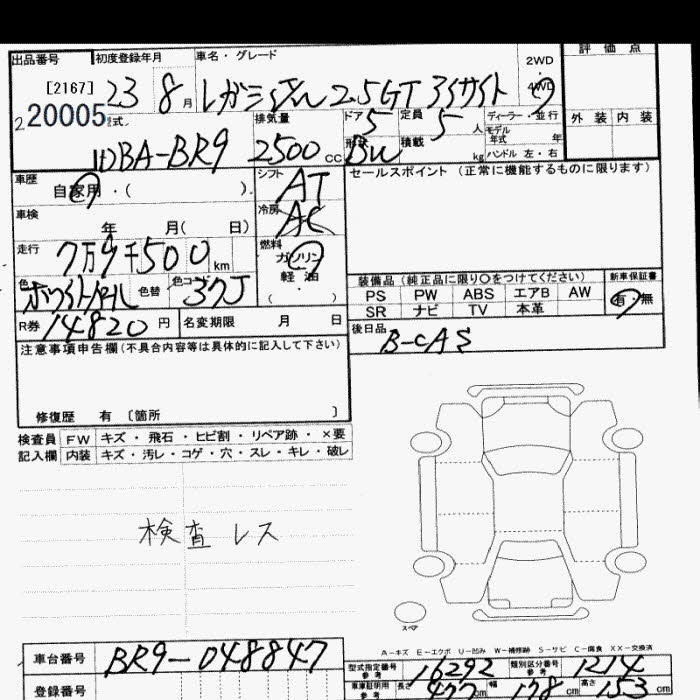 出品番号 初度登録年月 車名・グレード 2WD 評価点
[2167] 23 8月 2.5GT アイサイト 4WD
20005 型式 排気量 ドア 5 定員 5人 ディーラー・並行 外装 内装
DBA-BR9 2500cc 形状 積載 kg モデル年式 年
ハンドル 左・右
車歴 自家用・( ) シフト AT セールスポイント (正常に機能するものに限ります)
車検 年 月( 日) 冷房 AC
走行 7万9千500km 燃料 ガソリン
軽油
( )
色 ホワイトパール 色替 色コード 37J
装備品 (純正品に限り○をつけてください) 新車保証書
PS PW ABS エアB AW 有・無
SR ナビ TV 本革
R券 14820円 名変期限 月 日 後日品 B-CAS
注意事項申告欄(不具合内容等は具体的に記入して下さい)
修復歴 有 〔箇所 〕
検査員 FW キズ・飛石・ヒビ割・リペア跡・×要
記入欄 内装 キズ・汚レ・コゲ・穴・スレ・キレ・破レ
検査レス
スペア
A-キズ E-エクボ U-凹み W-補修跡 S-サビ C-腐食 XX-交換済
車台番号 BR9-048847 型式指定番号 参考 16292 類別区分番号 参考 1214
登録番号 車庫証明用 参考 長さ 477cm 幅 178cm 高さ 153cm